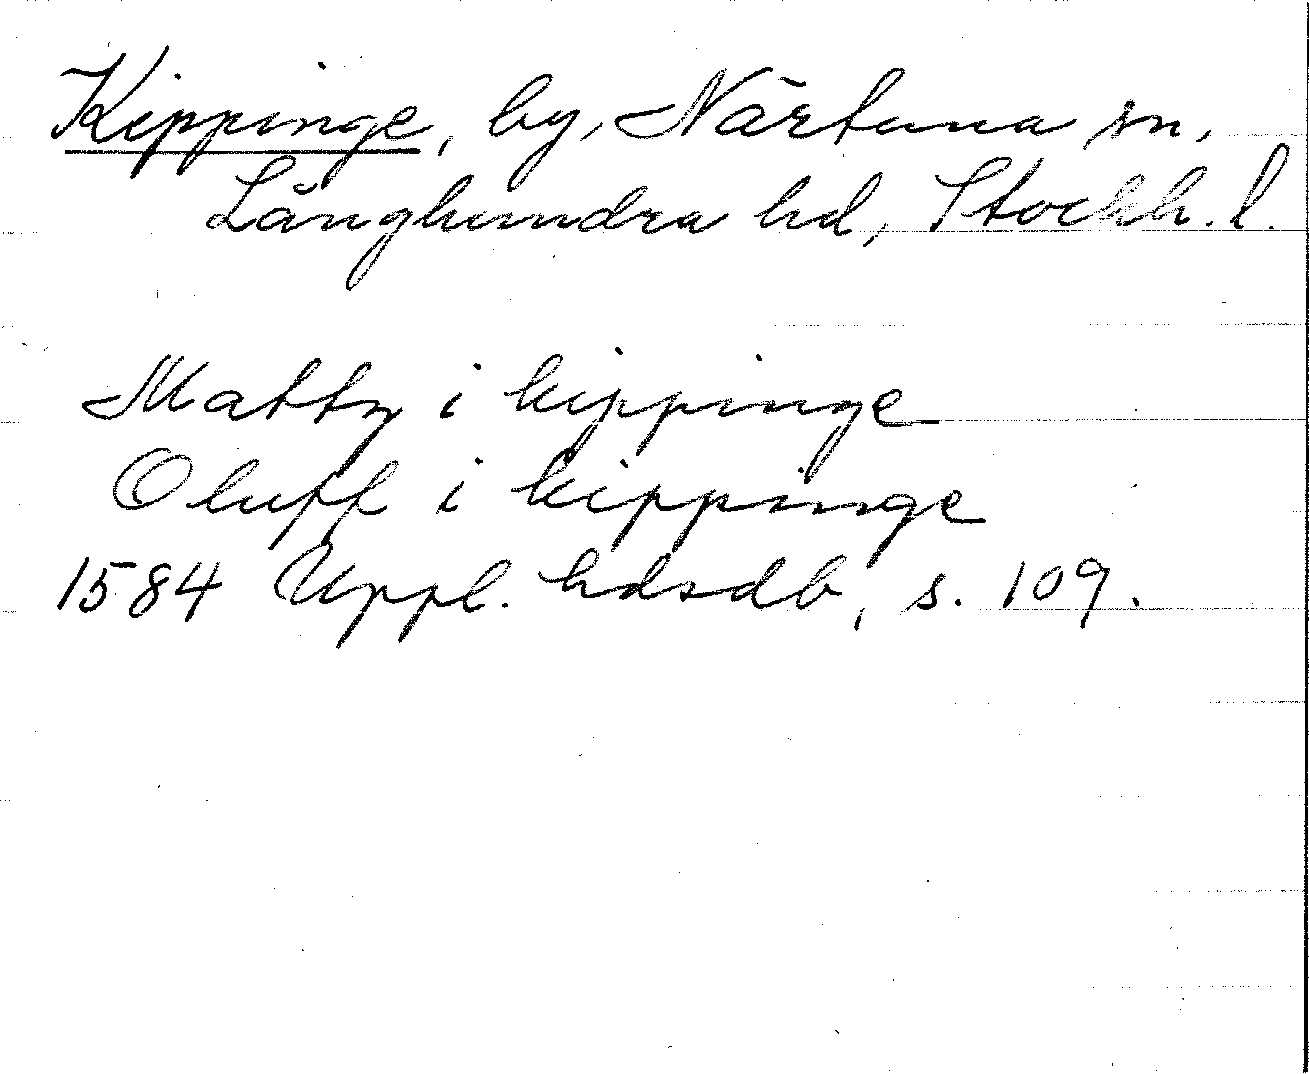 Kippinge, by, Närtuna sn,
Långhundra hd, Stockh. l.
Mattz i kippinge
Oluff i kippinge
1584 Uppl. hdsdb, s. 109.